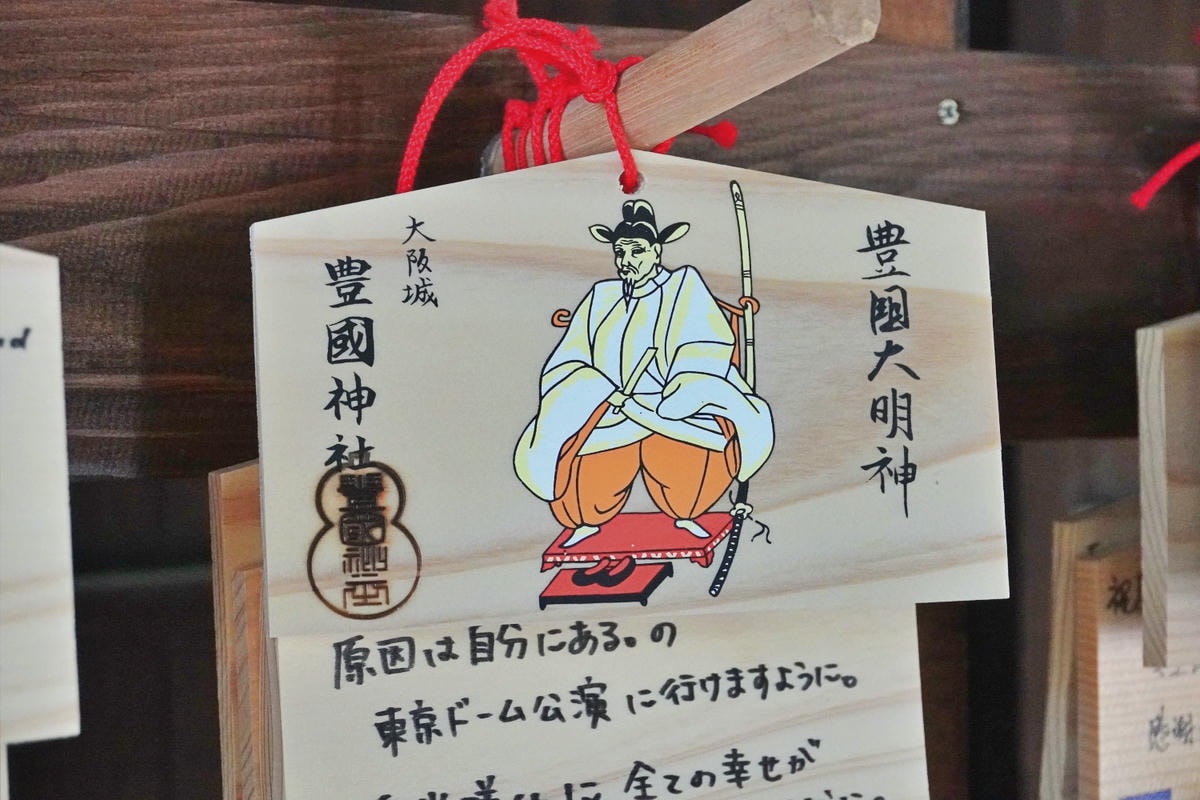 豊国大明神
大阪城
豊國神社
豊國神社
原因は自分にある。の
東京ドーム公演に行けますように。
全ての幸せが
感謝